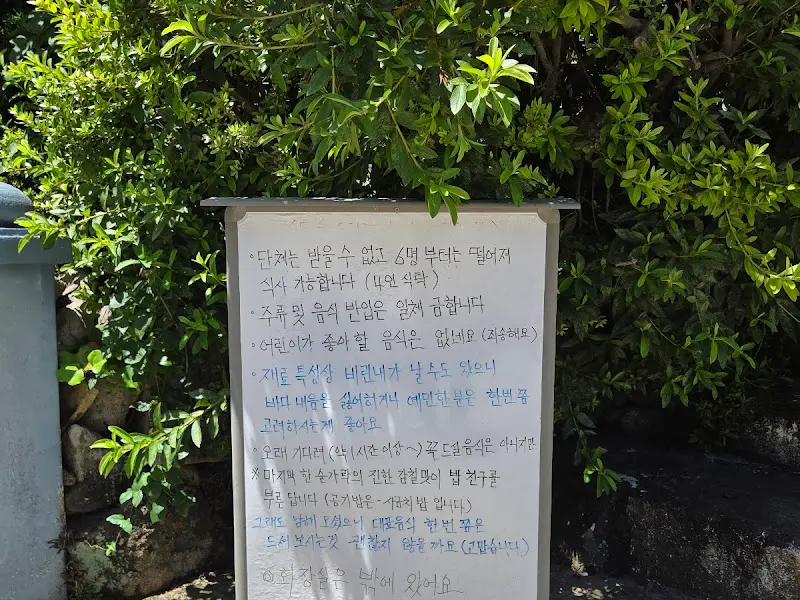 ◦단체는 받을 수 없고 6명 부터는 떨어져
식사 가능합니다 (4인 식탁)
◦주류 및 음식 반입은 일체 금합니다
◦어린이가 좋아할 음식은 없네요 (죄송해요)
◦재료 특성상 비린내가 날 수도 있으니
바다 내음을 싫어하거나 예민한분은 한번쯤
고려하시는게 좋아요
◦오래 기다려 (약 1시간 이상~) 꼭 드실 음식은 아니지만
※마지막 한 숟가락의 진한 감칠맛이 밥 친구를
부른답니다 (공기밥은 - 시금치 밥 입니다)
그래도 남해 오셨으니 대표음식 한번 쯤은
드셔 보시는것 괜찮지 않을까요 (고맙습니다)
◎화장실은 밖에 있어요